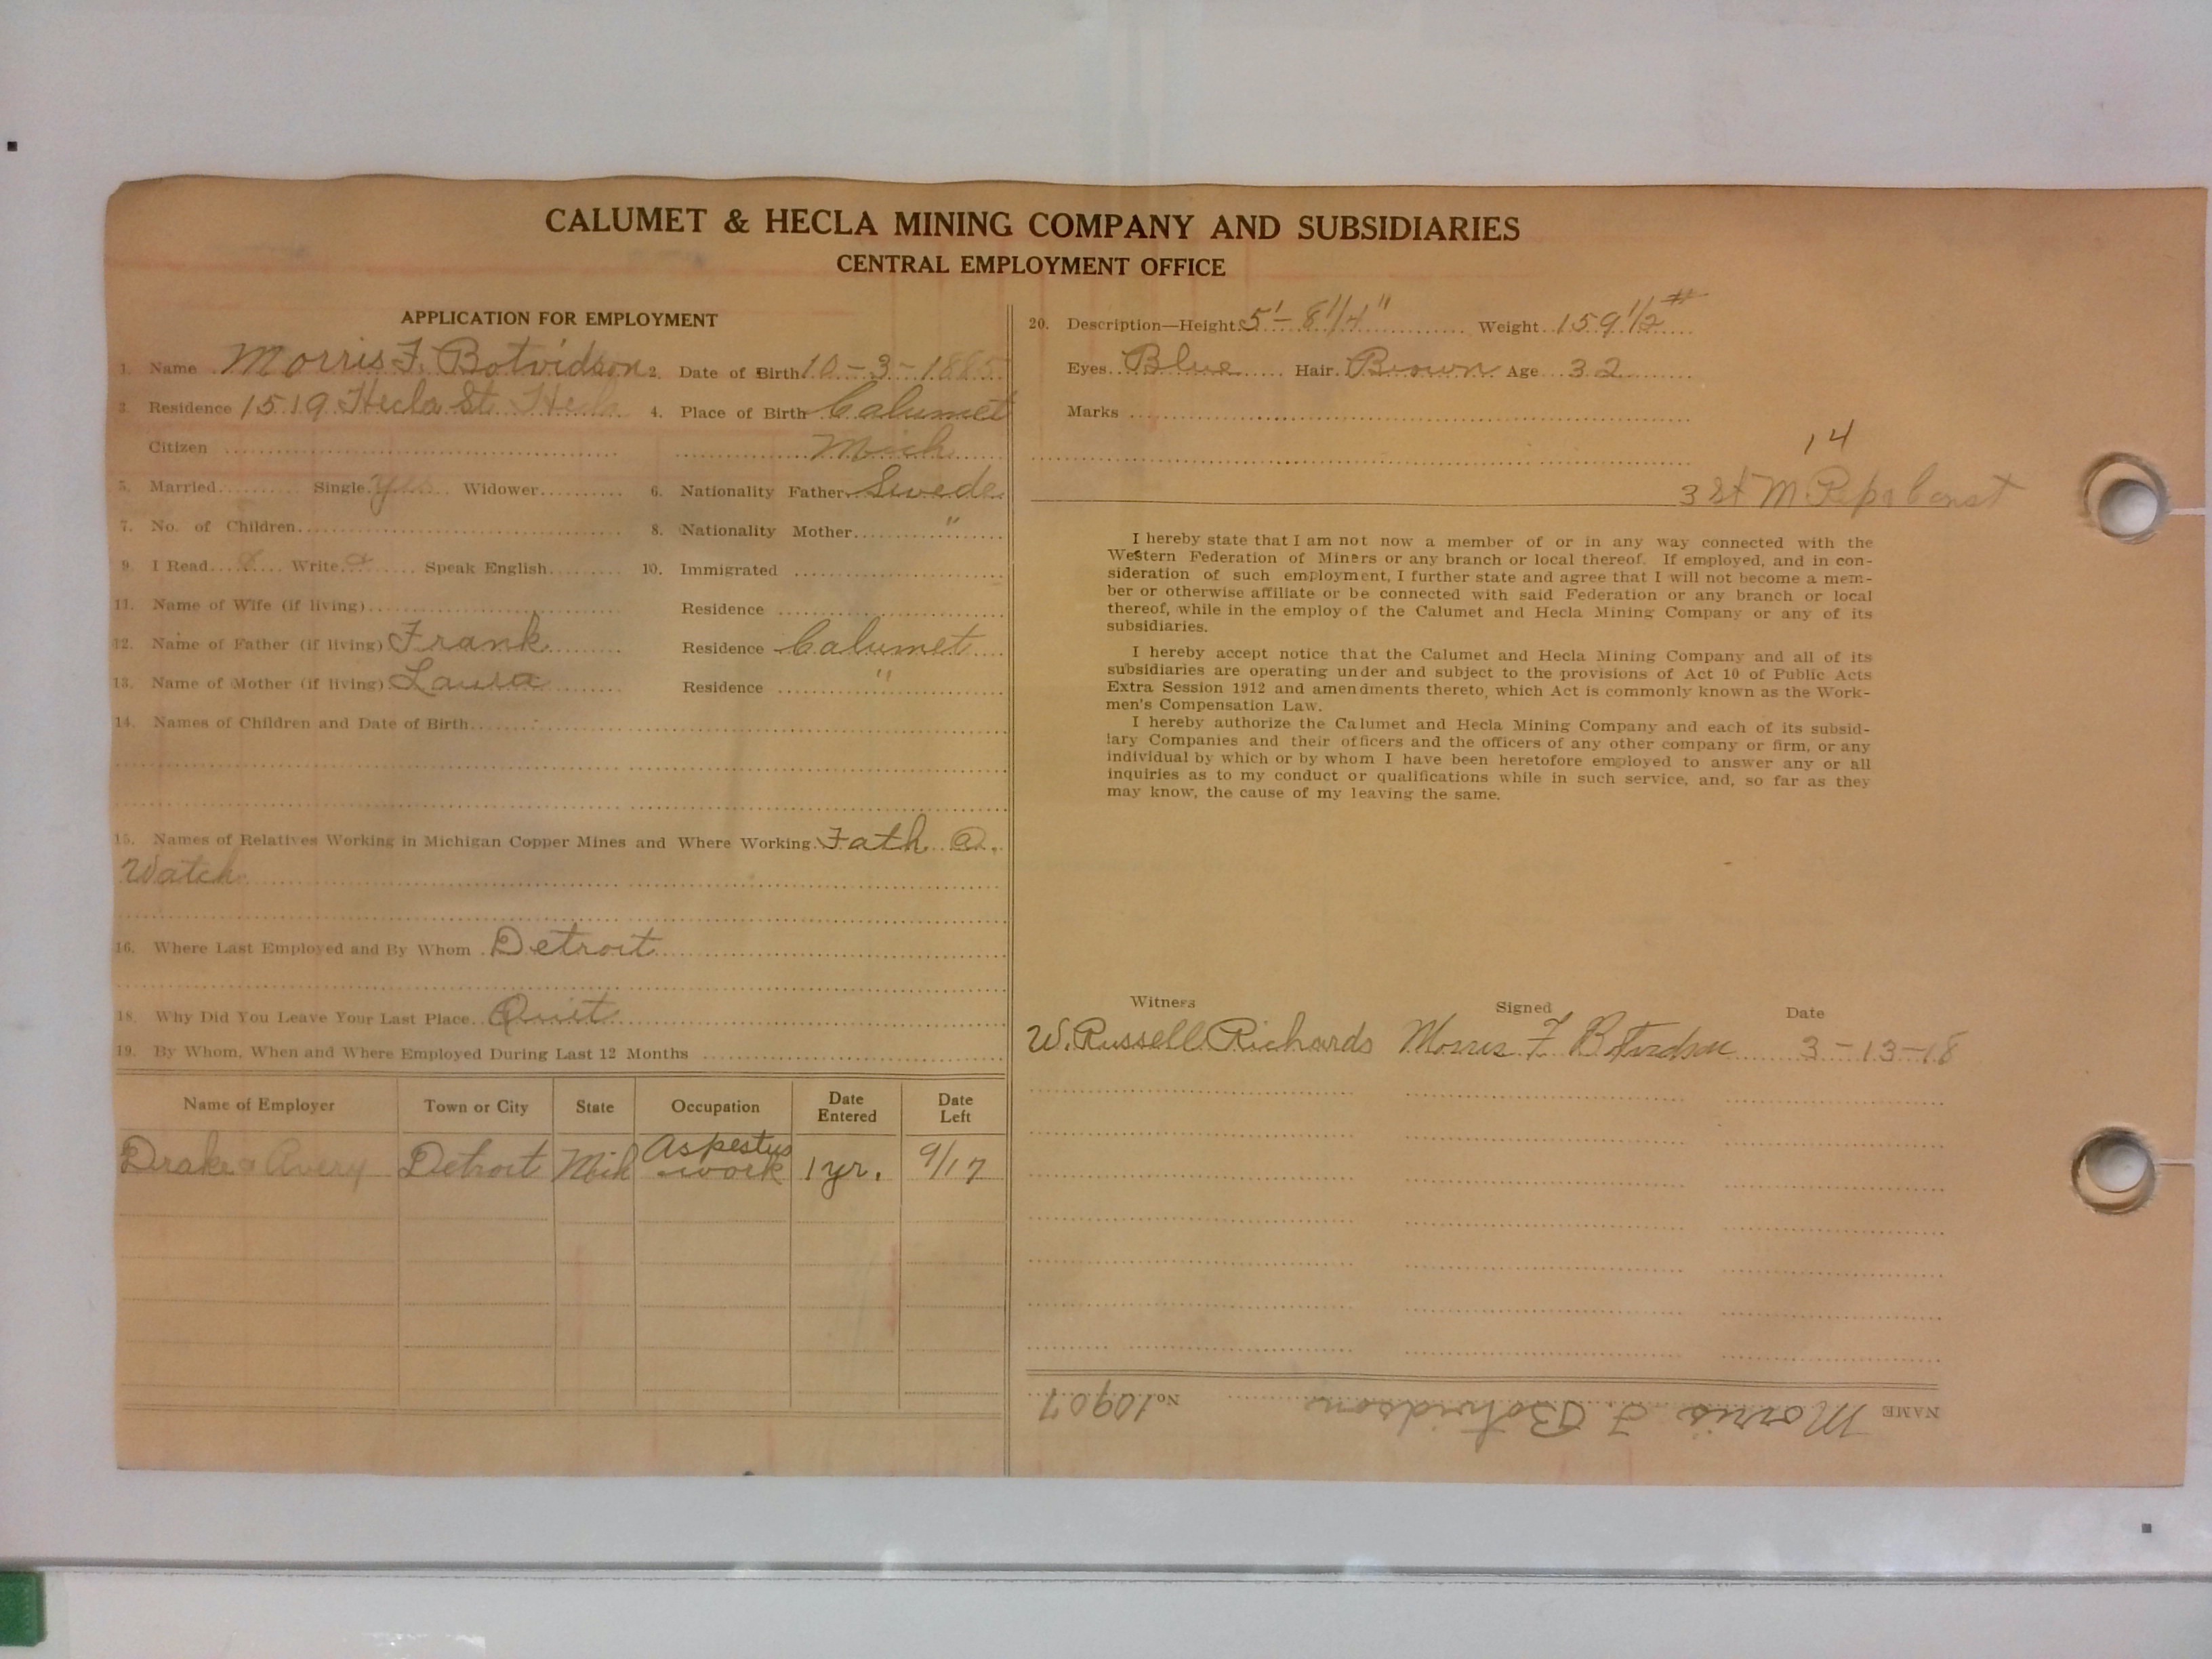 CALUMET & HECLA MINING COMPANY AND SUBSIDIARIES
CENTRAL EMPLOYMENT OFFICE
APPLICATION FOR EMPLOYMENT
1. Name Morris F. Botvidson 2. Date of Birth 10-3-1885
3. Residence 1519 Hecla St. Hecla 4. Place of Birth Calumet
Citizen Mich
5. Married Single yes Widower 6. Nationality Father Swede
7. No. of Children 8. Nationality Mother "
9. I Read Write Speak English 10. Immigrated
11. Name of Wife (if living) Residence
12. Name of Father (if living) Frank Residence Calumet
13. Name of Mother (if living) Laura Residence "
14. Names of Children and Date of Birth
15. Names of Relatives Working in Michigan Copper Mines and Where Working. Fath. a.
Watch
16. Where Last Employed and By Whom Detroit
18. Why Did You Leave Your Last Place Quit
19. By Whom, When and Where Employed During Last 12 Months
Name of Employer Town or City State Occupation Date Entered Date Left
Drake & Avery Detroit Mich Aspestus work 1 yr. 9/17
20. Description—Height 5'-8 1/4" Weight 159 1/2 #
Eyes Blue Hair Brown Age 32
Marks
14
I hereby state that I am not now a member of or in any way connected with the
Western Federation of Miners or any branch or local thereof. If employed, and in con-
sideration of such employment, I further state and agree that I will not become a mem-
ber or otherwise affiliate or be connected with said Federation or any branch or local
thereof, while in the employ of the Calumet and Hecla Mining Company or any of its
subsidiaries.
I hereby accept notice that the Calumet and Hecla Mining Company and all of its
subsidiaries are operating under and subject to the provisions of Act 10 of Public Acts
Extra Session 1912 and amendments thereto, which Act is commonly known as the Work-
men's Compensation Law.
I hereby authorize the Calumet and Hecla Mining Company and each of its subsid-
iary Companies and their officers and the officers of any other company or firm, or any
individual by which or by whom I have been heretofore employed to answer any or all
inquiries as to my conduct or qualifications while in such service, and, so far as they
may know, the cause of my leaving the same.
Witness Signed Date
W. Russell Richards Morris F Botvidson 3-13-18
NAME Morris F. Botvidson No. 10907